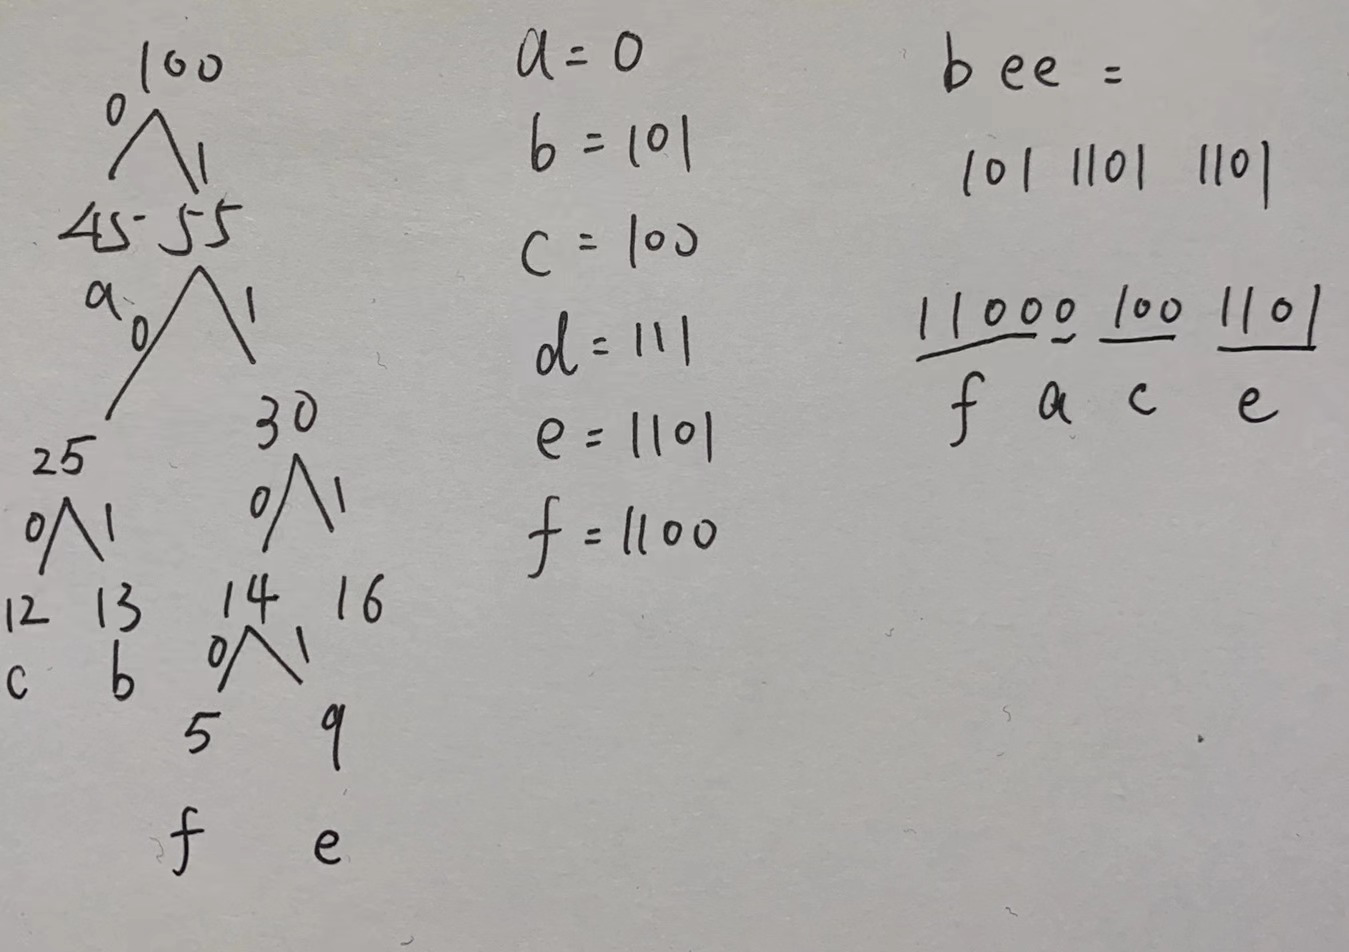 100
0 1
45 55
a
0 1
25 30
0 1 0 1
12 13 14 16
c b 0 1
5 9
f e
a = 0
b = 101
c = 100
d = 111
e = 1101
f = 1100
bee =
101 1101 1101
11000 100 1101
f a c e